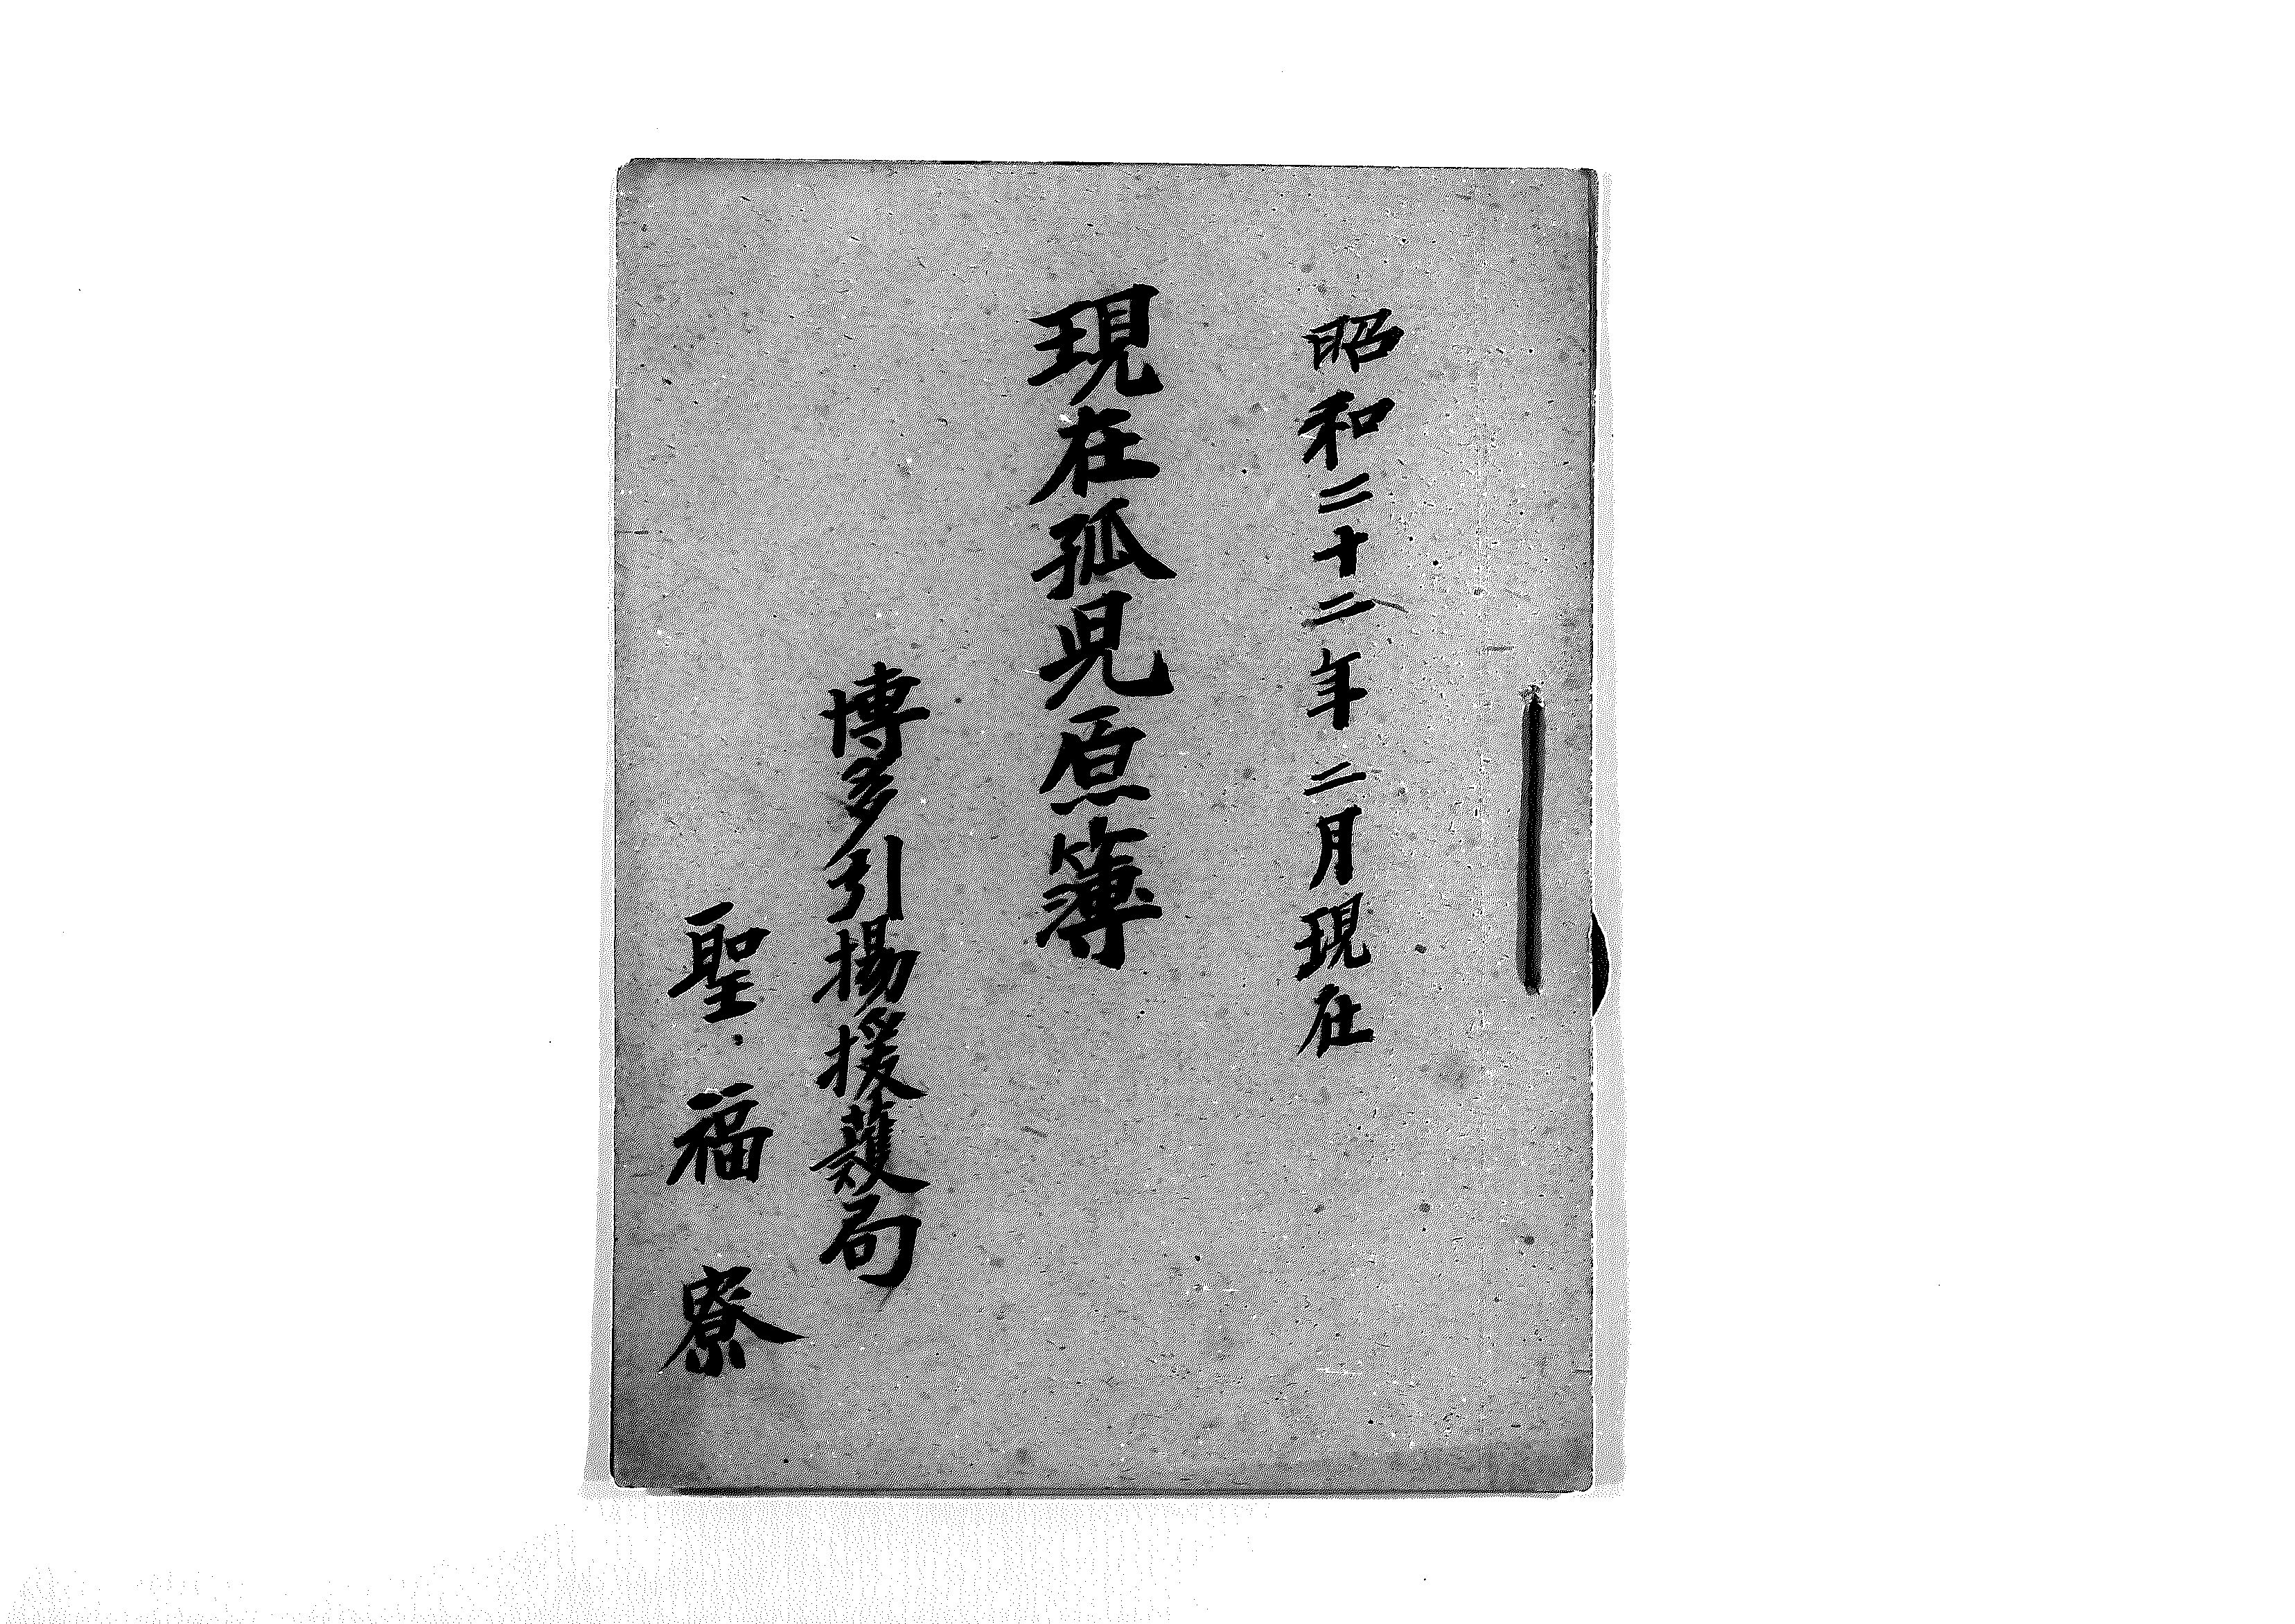 昭和二十二年二月現在
現在孤児原簿
博多引揚援護局
聖福寮